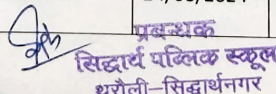 प्रबन्धक
सिद्धार्थ पब्लिक स्कूल
थरौली-सिद्धार्थनगर